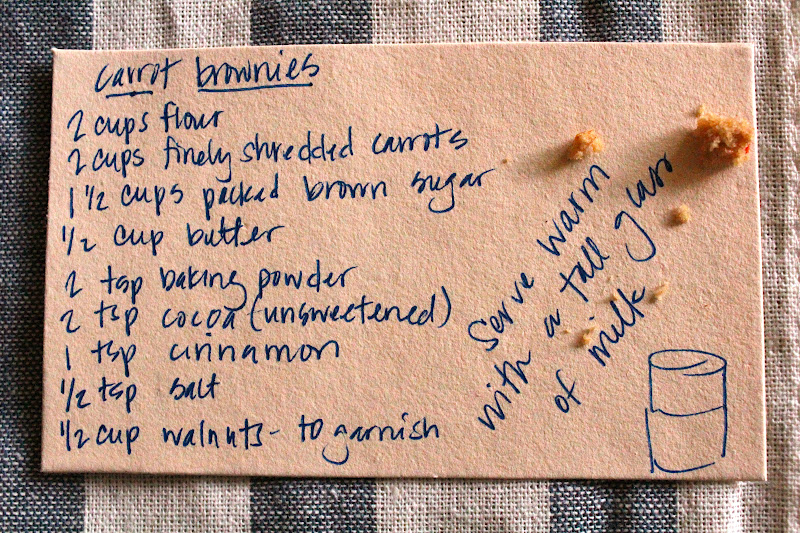 carrot brownies
2 cups flour
2 cups finely shredded carrots
1 1/2 cups packed brown sugar
1/2 cup butter
2 tsp baking powder
2 tsp cocoa (unsweetened)
1 tsp cinnamon
1/2 tsp salt
1/2 cup walnuts - to garnish
Serve warm
with a tall glass
of milk